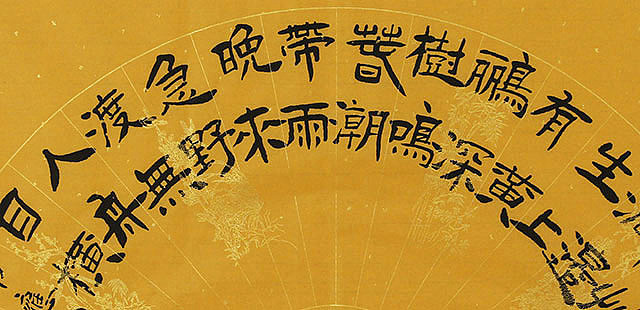 邊
生上
有黄
鸝深
樹鳴
春潮
帶雨
晚來
急野
渡無
人舟
自橫